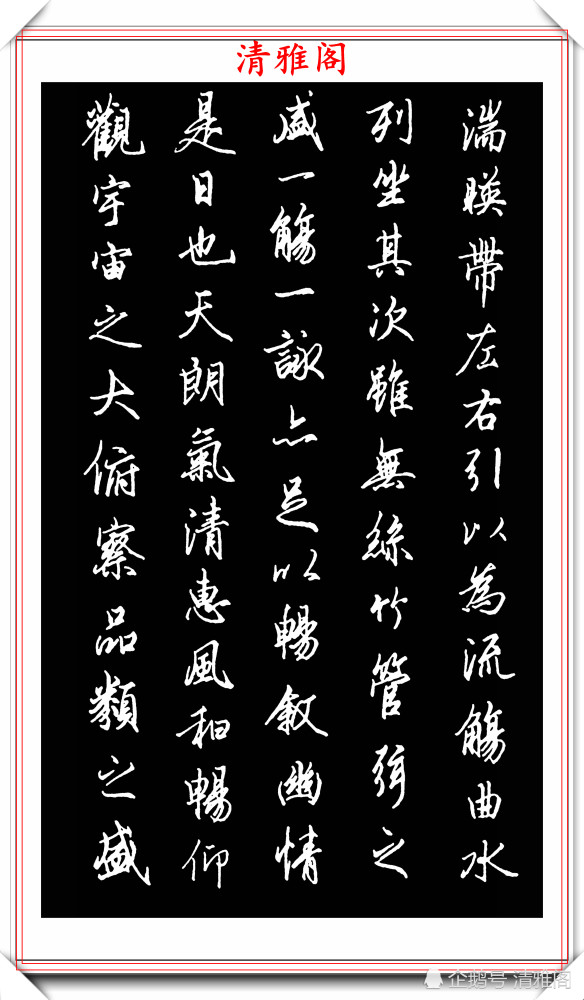 清雅阁
湍暎帶左右引以為流觴曲水
列坐其次雖無絲竹管弦之
盛一觴一詠亦足以暢敘幽情
是日也天朗氣清惠風和暢仰
觀宇宙之大俯察品類之盛
企鹅号 清雅阁